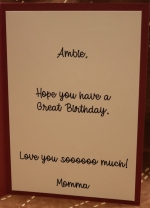 Amble,
Hope you have a
Great Birthday,
Love you soooooo much!
Momma